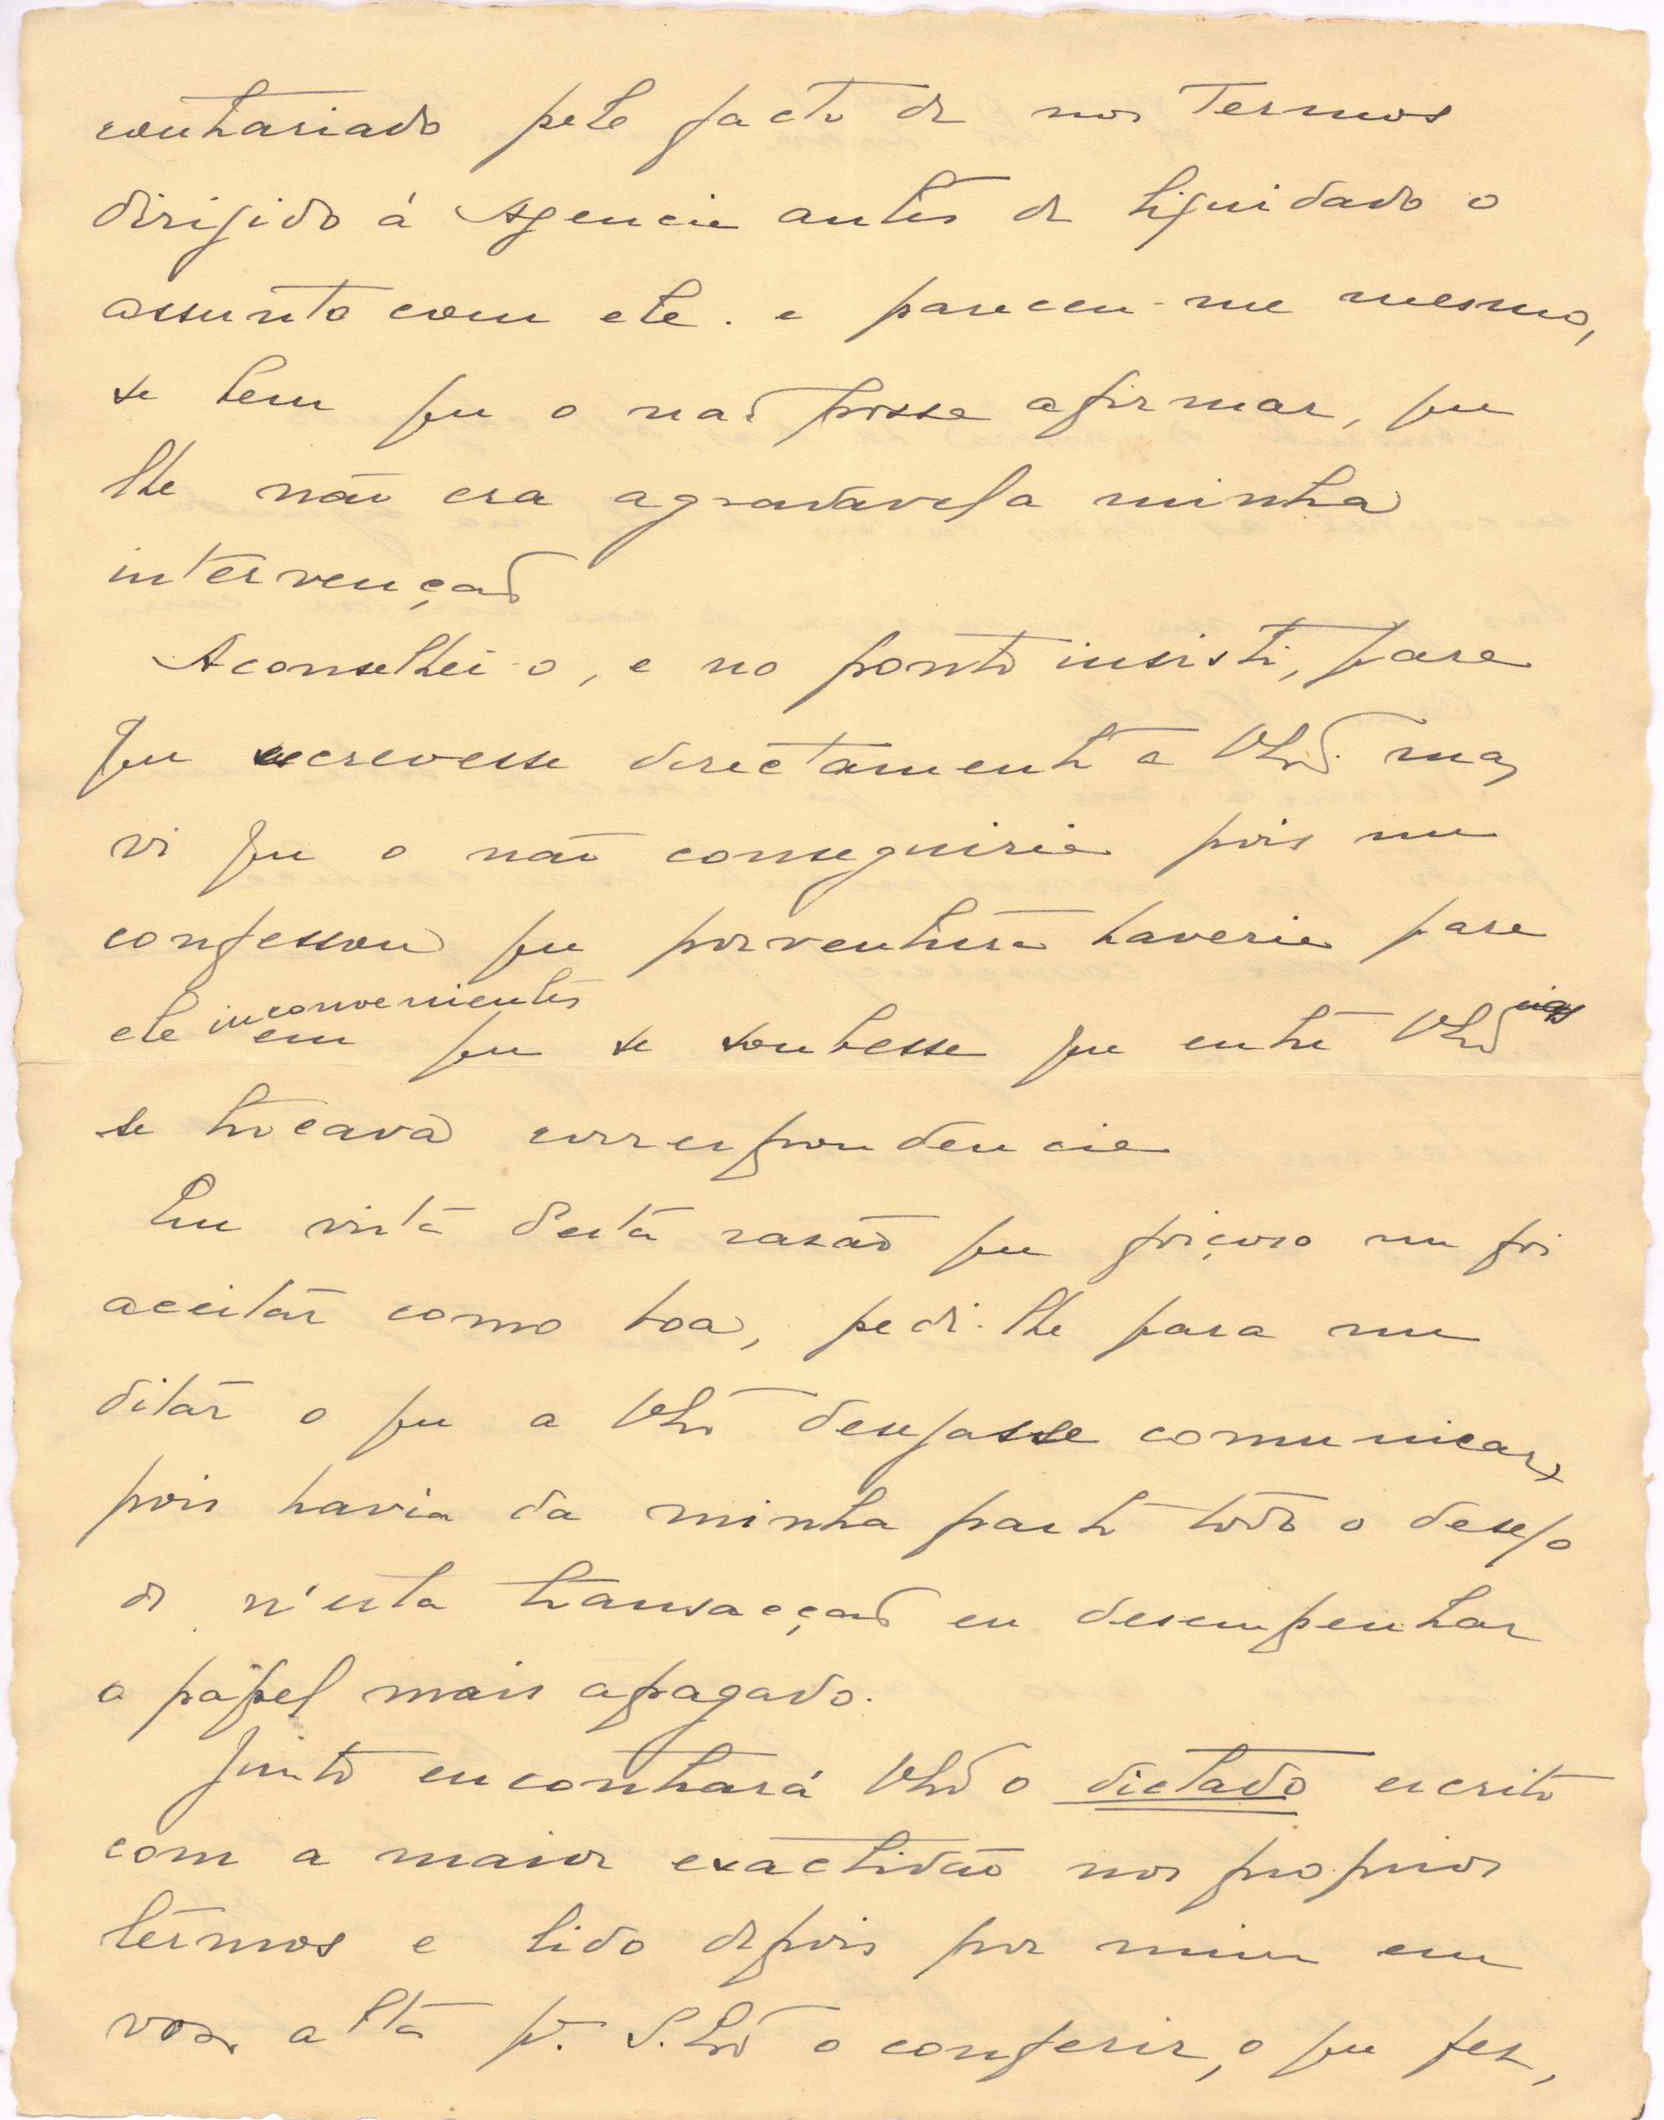 contrariado pelo facto de nos termos
dirigido á Agencia antes de liquidado o
assunto com ele. e pareceu-me mesmo,
se bem que o não possa afirmar, que
lhe não era agradavel a minha
intervenção
Aconselhei-o, e no ponto insisti, para
que escrevesse directamente a VExª. mas
vi que o não conseguiria pois me
confessou que porventura haveria para
ele inconvenientes em que se soubesse que entre VExª
se trocava correspondencia
Em vista d'esta rasão que forçoso me foi
aceitar como boa, pedi-lhe para me
ditar o que a VExª desejasse comunicar,
pois havia da minha parte todo o desejo
de n'esta transacção eu desempenhar
o papel mais apagado.
Junto encontrará VExª o dictado escrito
com a maior exactidão nos proprios
termos e lido depois por mim em
voz alta pª. S.Exª o conferir, o que fez,